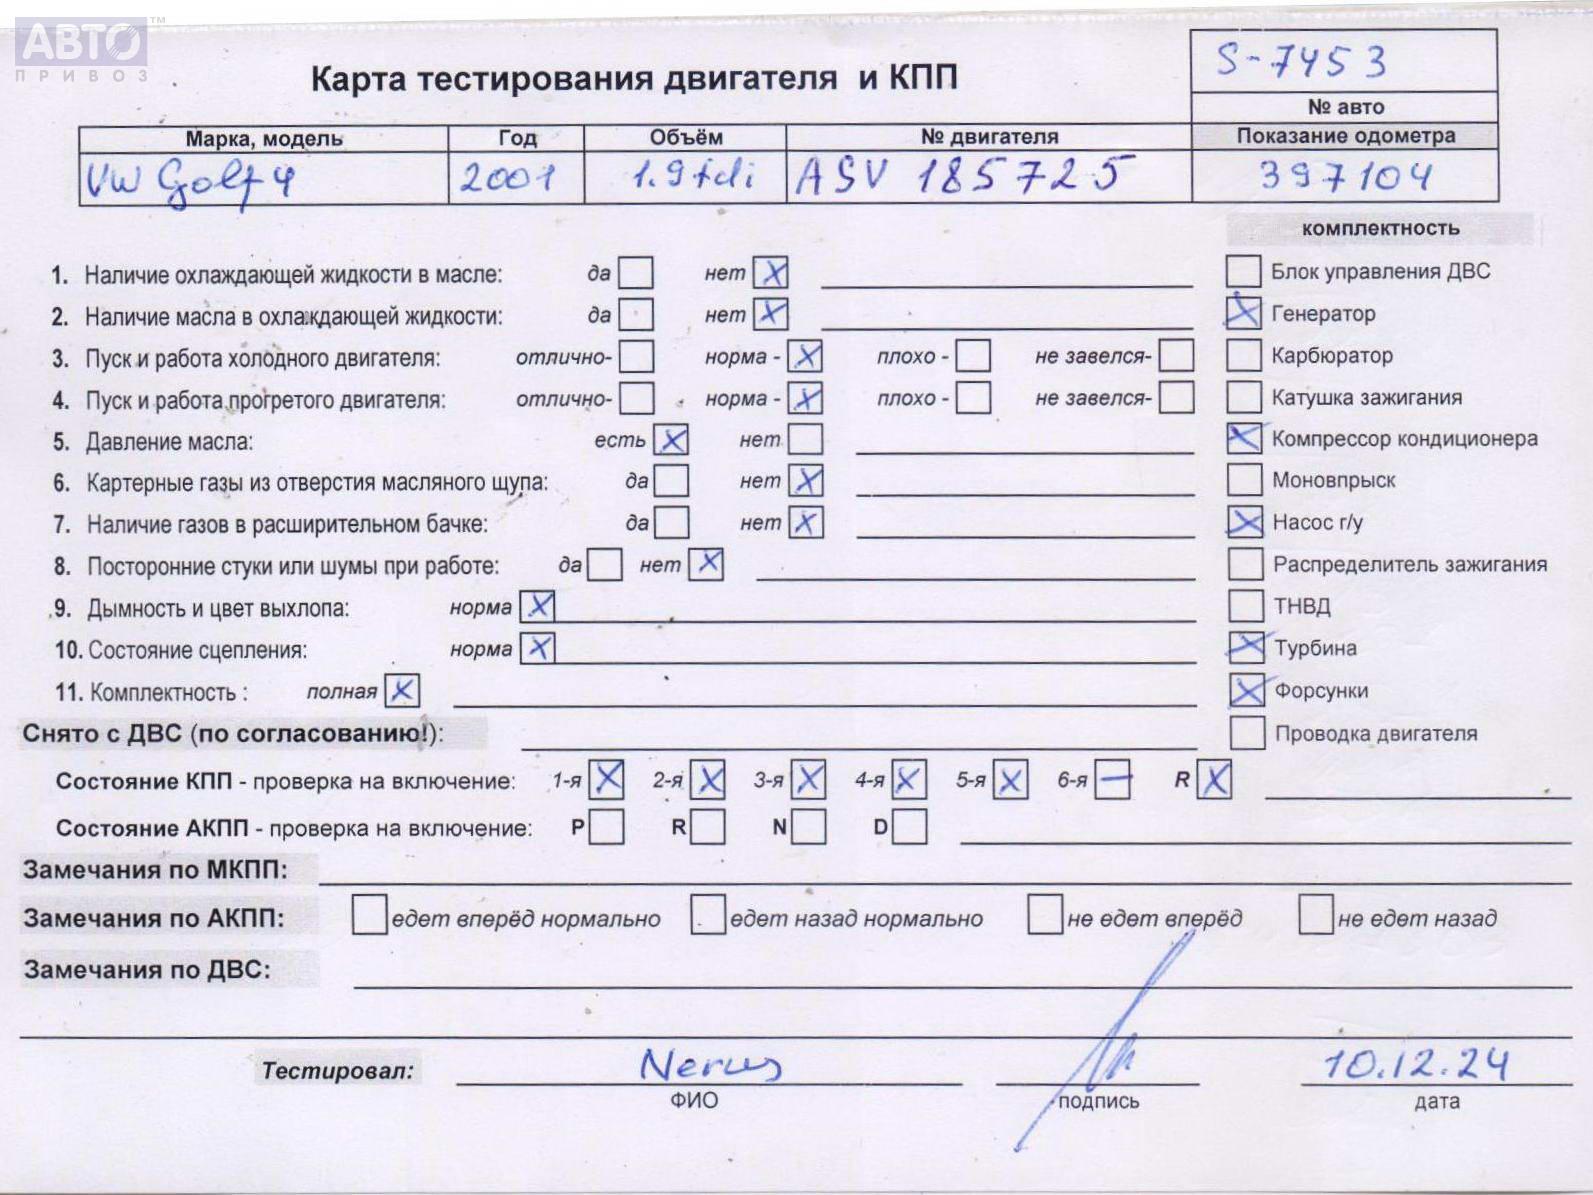 АВТО ™
ПРИВОЗ
S-7453
Карта тестирования двигателя и КПП
№ авто
Марка, модель Год Объём № двигателя Показание одометра
VW Golf 4 2001 1.9 tdi ASV 185725 397104
комплектность
1. Наличие охлаждающей жидкости в масле: да нет X Блок управления ДВС
2. Наличие масла в охлаждающей жидкости: да нет X X Генератор
3. Пуск и работа холодного двигателя: отлично- норма - X плохо - не завелся- Карбюратор
4. Пуск и работа прогретого двигателя: отлично- норма - X плохо - не завелся- Катушка зажигания
5. Давление масла: есть X нет X Компрессор кондиционера
6. Картерные газы из отверстия масляного щупа: да нет X Моновпрыск
7. Наличие газов в расширительном бачке: да нет X X Насос г/у
8. Посторонние стуки или шумы при работе: да нет X Распределитель зажигания
9. Дымность и цвет выхлопа: норма X ТНВД
10. Состояние сцепления: норма X X Турбина
11. Комплектность : полная X X Форсунки
Снято с ДВС (по согласованию!): Проводка двигателя
Состояние КПП - проверка на включение: 1-я X 2-я X 3-я X 4-я X 5-я X 6-я — R X
Состояние АКПП - проверка на включение: P R N D
Замечания по МКПП:
Замечания по АКПП: едет вперёд нормально едет назад нормально не едет вперёд не едет назад
Замечания по ДВС:
Тестировал: 10.12.24
ФИО подпись дата